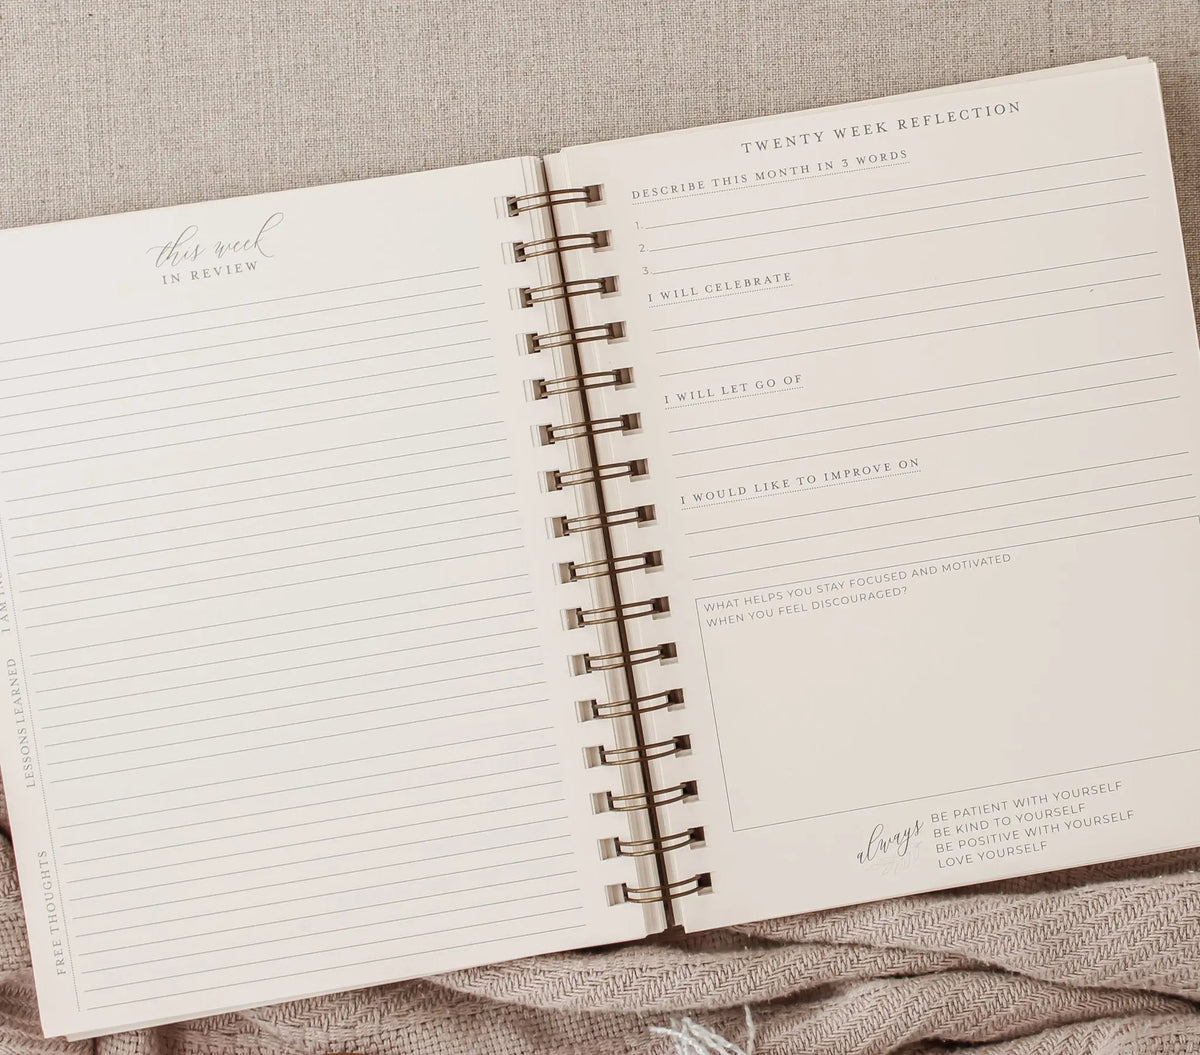 this week
IN REVIEW
I AM
LESSONS LEARNED
FREE THOUGHTS
TWENTY WEEK REFLECTION
DESCRIBE THIS MONTH IN 3 WORDS
1.
2.
3.
I WILL CELEBRATE
I WILL LET GO OF
I WOULD LIKE TO IMPROVE ON
WHAT HELPS YOU STAY FOCUSED AND MOTIVATED
WHEN YOU FEEL DISCOURAGED?
always
BE PATIENT WITH YOURSELF
BE KIND TO YOURSELF
BE POSITIVE WITH YOURSELF
LOVE YOURSELF